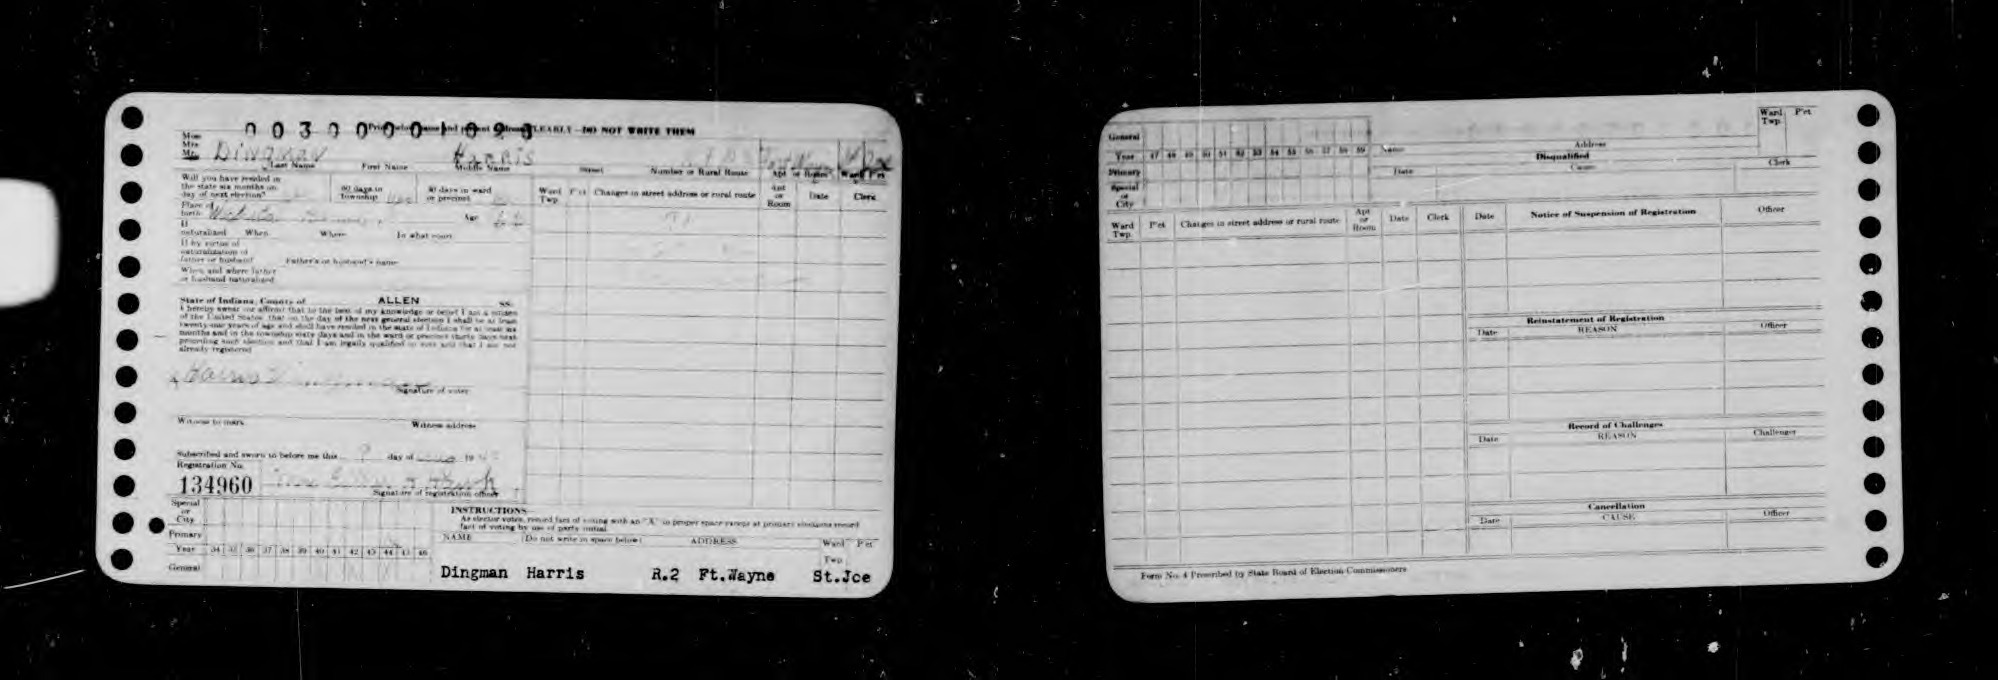 0030000 1093
Print below name and present address CLEARLY—DO NOT WRITE THEM
Miss
Mrs
Mr. DINGMAN HARRIS
Last Name First Name Middle Name Street Number or Rural Route Apt or Room Ward P'ct
Will you have resided in
the state six months on
day of next election?
60 days in
township
30 days in ward
or precinct
Ward
Twp. P'ct Changes in street address or rural route Apt
or
Room Date Clerk
Place of
birth Age
If
naturalized When Where In what court
If by virtue of
naturalization of
father or husband Father's or husband's name
When and where father
or husband naturalized
State of Indiana, County of ALLEN SS.
I hereby swear (or affirm) that to the best of my knowledge or belief I am a citizen
of the United States, that on the day of the next general election I shall be at least
twenty-one years of age and shall have resided in the state of Indiana for at least six
months and in the township sixty days and in the ward or precinct thirty days next
preceding such election and that I am legally qualified to vote and that I am not
already registered
Harris
Signature of voter
Witness to mark Witness address
Subscribed and sworn to before me this day of 19
Registration No.
134960
Signature of registration officer
Special
or
City
Primary
Year 34 35 36 37 38 39 40 41 42 43 44 45 46
General
INSTRUCTIONS
As elector votes, record fact of voting with an "X" in proper space except at primary elections record
fact of voting by use of party initial
NAME (Do not write in space below) ADDRESS Ward P'ct
Twp.
Dingman Harris R.2 Ft.Wayne St.Joe
General
Year 47 48 49 50 51 52 53 54 55 56 57 58 59
Primary
Special
or
City
Name Address
Ward
Twp. P'ct
Disqualified
Date Cause Clerk
Ward
Twp. P'ct Changes in street address or rural route Apt
or
Room Date Clerk
Date Notice of Suspension of Registration Officer
Reinstatement of Registration
Date REASON Officer
Record of Challenges
Date REASON Challenger
Cancellation
Date CAUSE Officer
Form No. 4 Prescribed by State Board of Election Commissioners